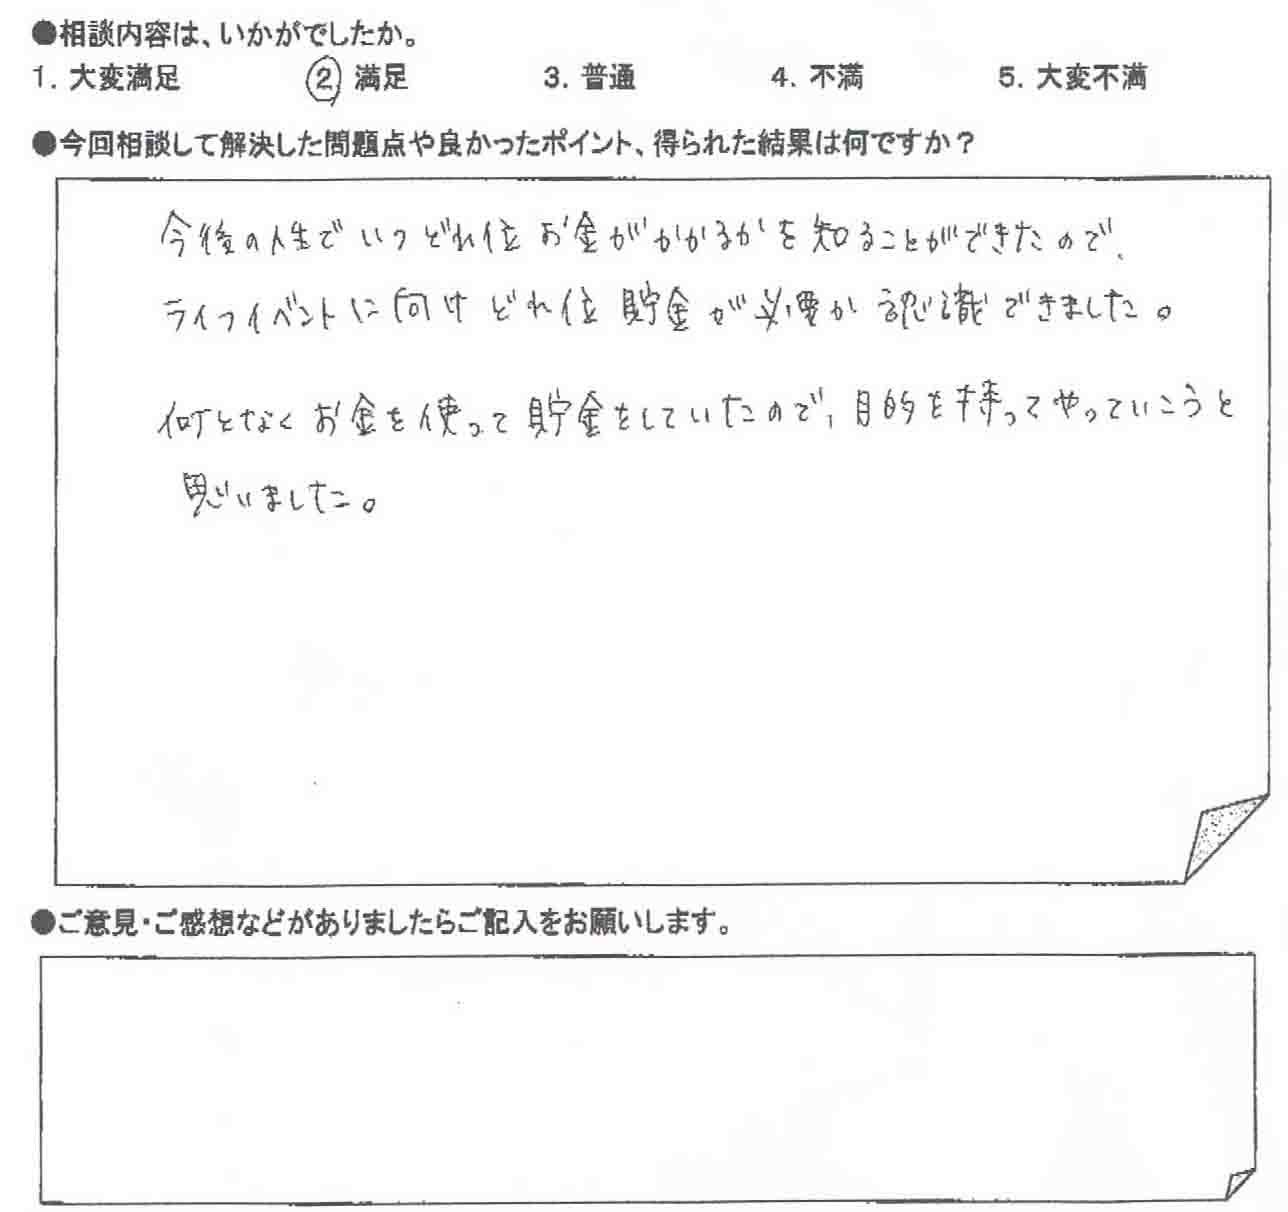 ●相談内容は、いかがでしたか。
1. 大変満足 2 満足 3. 普通 4. 不満 5. 大変不満
●今回相談して解決した問題点や良かったポイント、得られた結果は何ですか？
今後の人生でいつどれ位お金がかかるかを知ることができたので、
ライフイベントに向けどれ位貯金が必要か認識できました。
何となくお金を使って貯金をしていたので、目的を持ってやっていこうと
思いました。
●ご意見・ご感想などがありましたらご記入をお願いします。